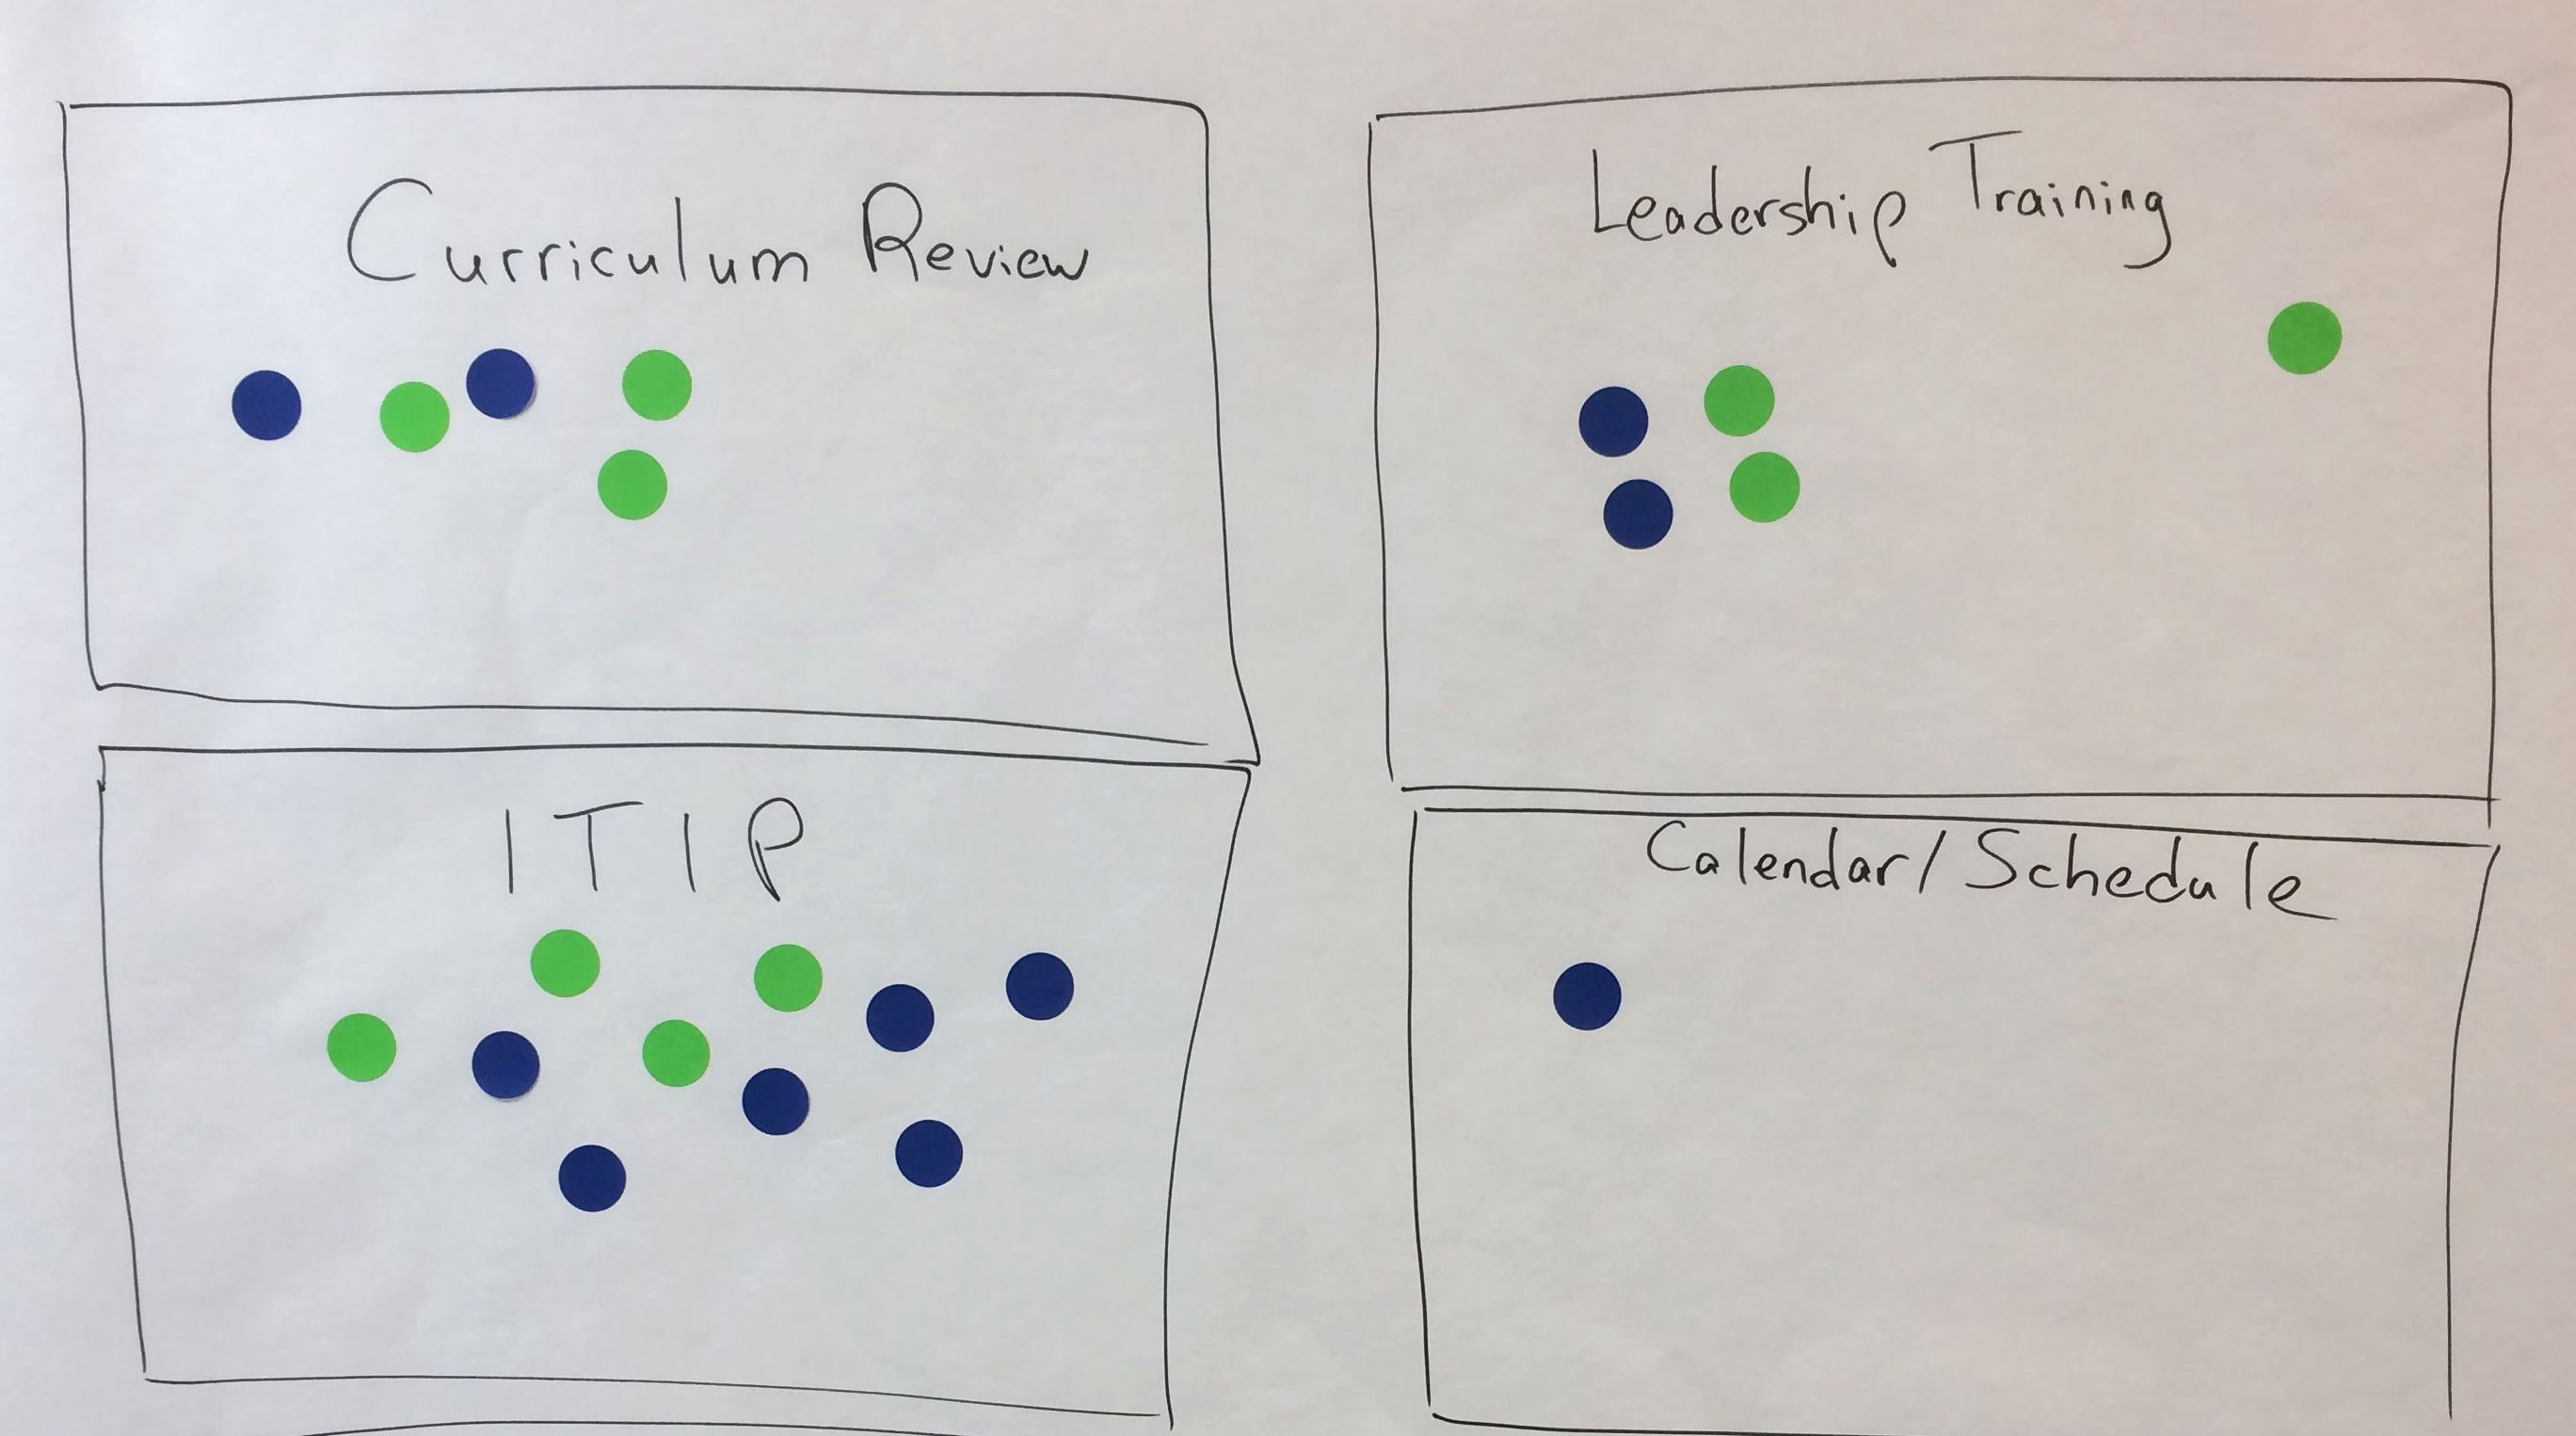 Curriculum Review
Leadership Training
ITIP
Calendar/Schedule